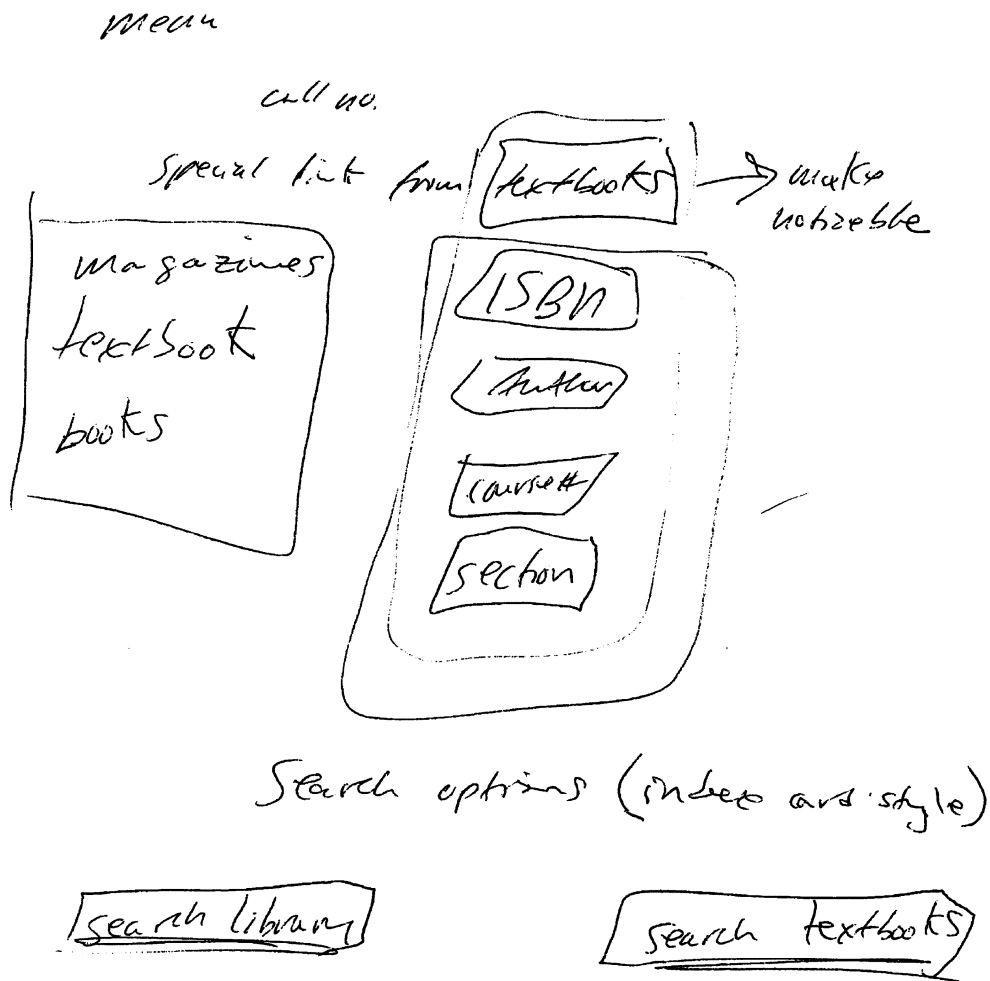 menu
call no.
special link from textbooks → make
noticeble
magazines
textbook
books
ISBN
Author
course#
section
Search options (index card style)
search library
search textbooks